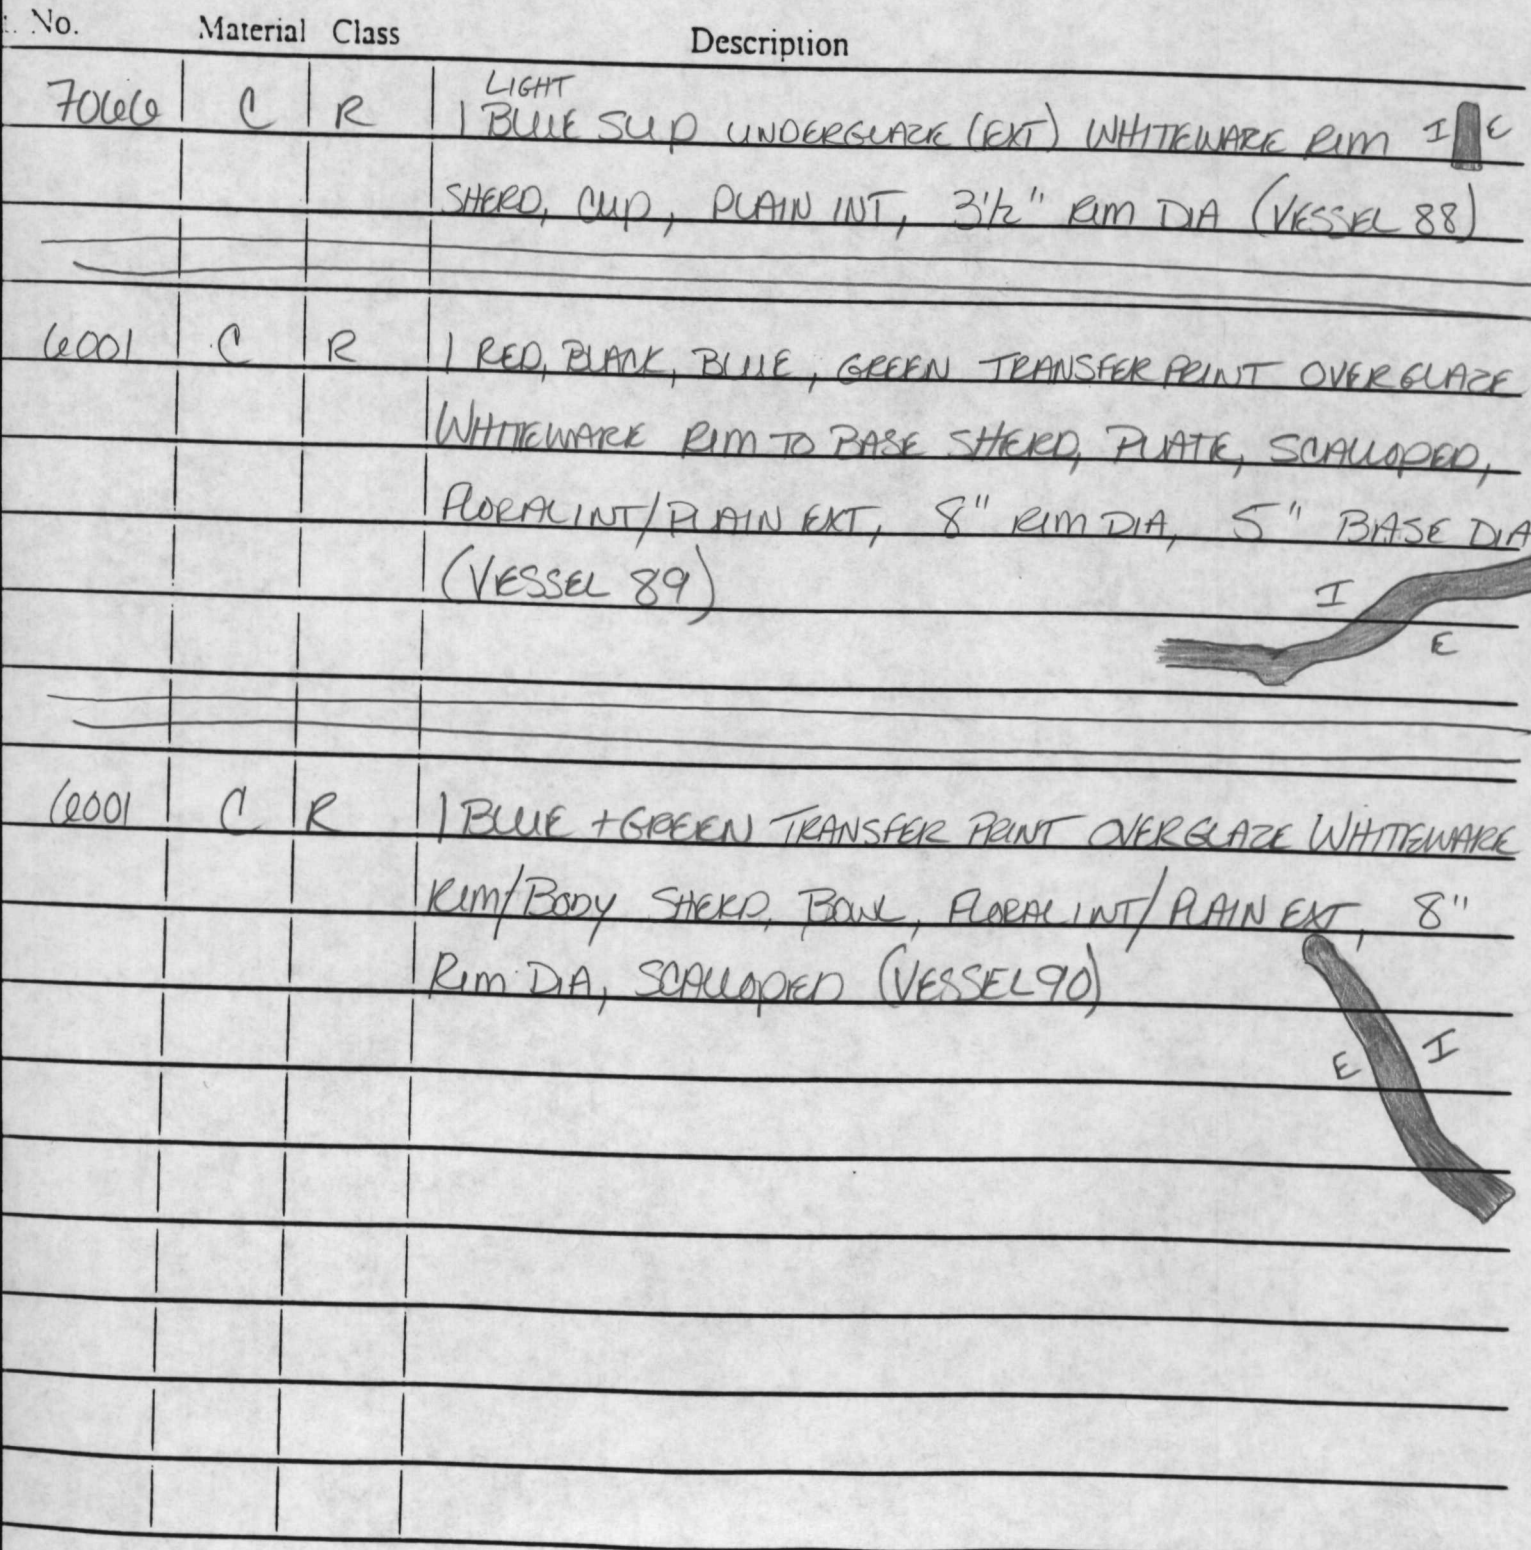 . No. Material Class Description
LIGHT
7066 C R 1 BLUE SLIP UNDERGLAZE (EXT) WHITEWARE RIM I E
SHERD, CUP, PLAIN INT, 3 1/2" RIM DIA (VESSEL 88)
6001 C R 1 RED, BLACK, BLUE, GREEN TRANSFER PRINT OVERGLAZE
WHITEWARE RIM TO BASE SHERD, PLATE, SCALLOPED,
FLORAL INT/PLAIN EXT, 8" RIM DIA, 5" BASE DIA
(VESSEL 89) I
E
6001 C R 1 BLUE + GREEN TRANSFER PRINT OVERGLAZE WHITEWARE
RIM/BODY SHERD, BOWL, FLORAL INT/PLAIN EXT, 8"
RIM DIA, SCALLOPED (VESSEL 90)
E I